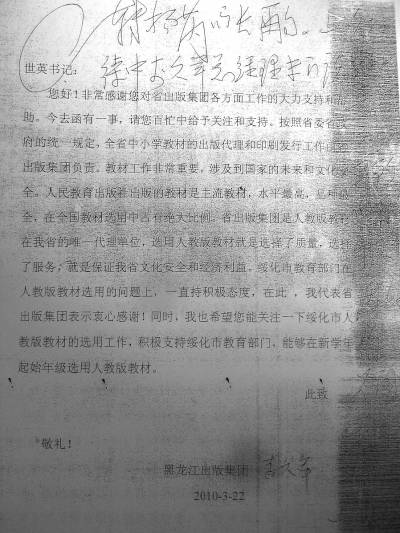 世英书记：
您好！非常感谢您对省出版集团各方面工作的大力支持和帮
助。今去函有一事，请您百忙中给予关注和支持。按照省委省政
府的统一规定，全省中小学教材的出版代理和印刷发行工作由
出版集团负责。教材工作非常重要，涉及到国家的未来和文化安
全。人民教育出版社出版的教材是主流教材，水平最高，品种最
全，在全国教材选用中占有绝大比例。省出版集团是人教版教材
在我省的唯一代理单位，选用人教版教材就是选择了质量，选择
了服务，就是保证我省文化安全和经济利益。绥化市教育部门在
人教版教材选用的问题上，一直持积极态度，在此，我代表省
出版集团表示衷心感谢！同时，我也希望您能关注一下绥化市人
教版教材的选用工作，积极支持绥化市教育部门，能够在新学年
起始年级选用人教版教材。
此致
敬礼！
黑龙江出版集团
2010-3-22